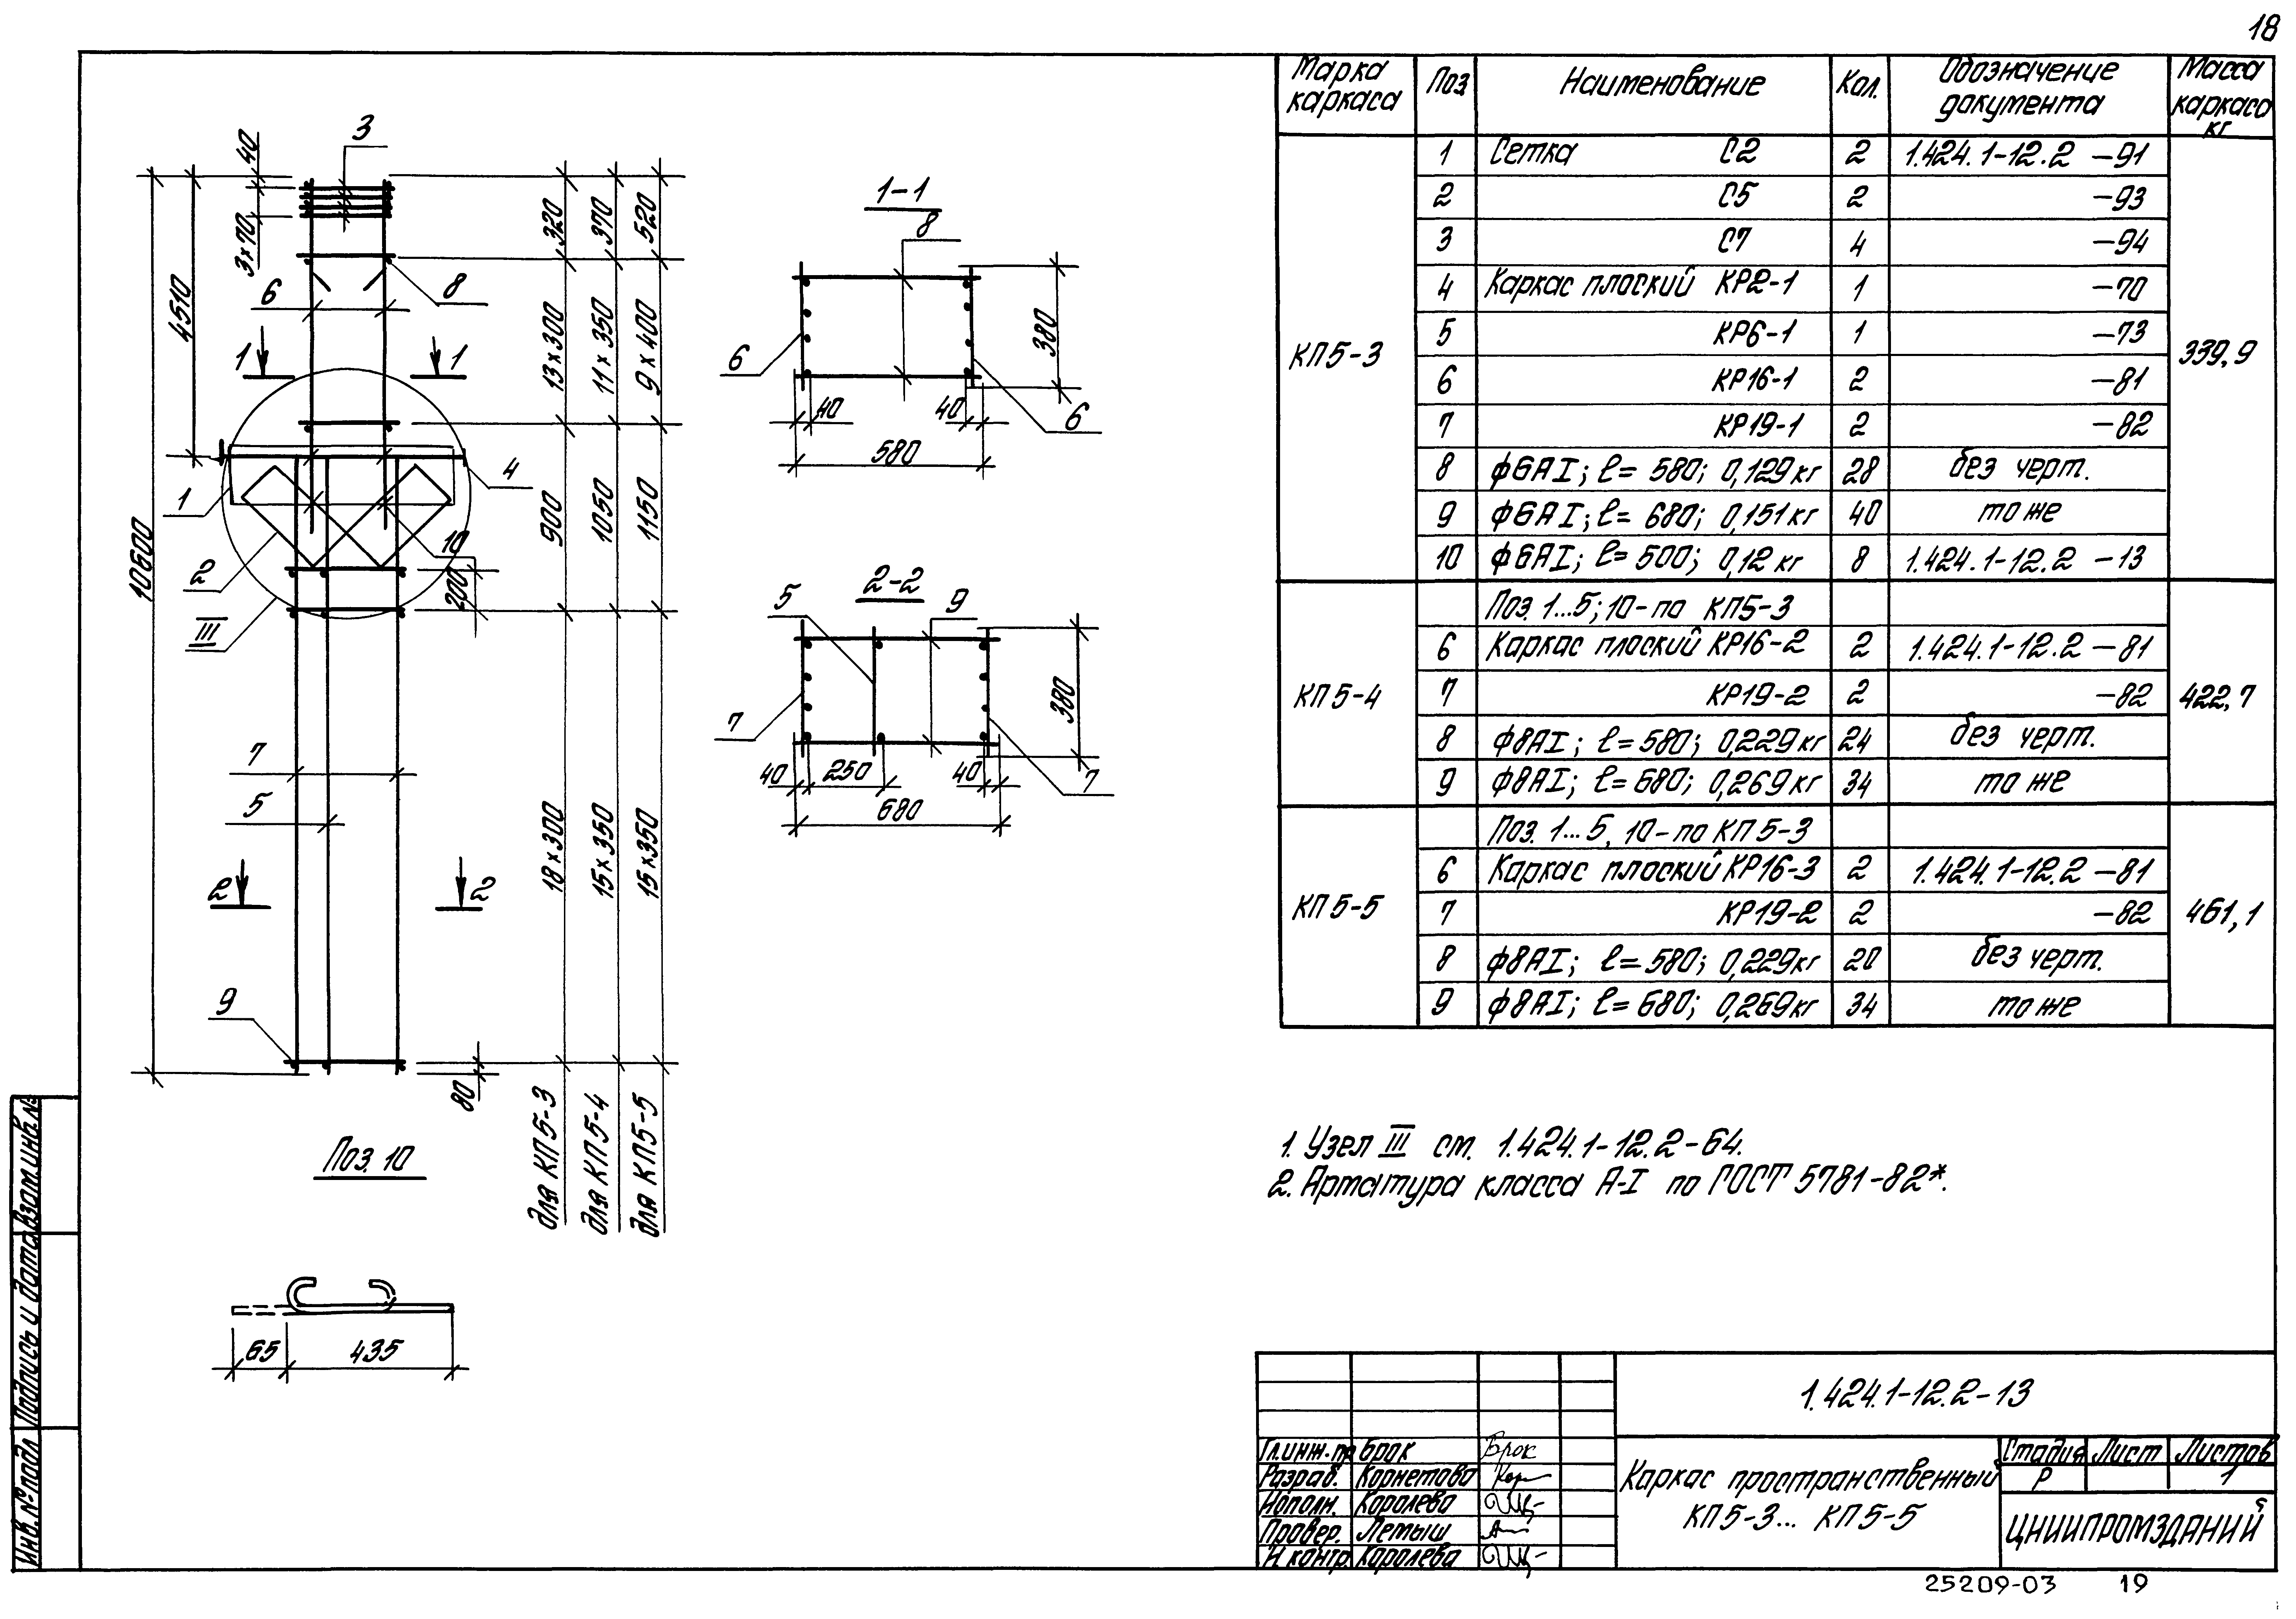 18
Марка каркаса
Поз
Наименование
Кол.
Обозначение документа
Масса каркаса кг
КП5-3
339,9
1 Сетка С2 2 1.424.1-12.2 -91
2 С5 2 -93
3 С7 4 -94
4 Каркас плоский КР2-1 1 -70
5 КР6-1 1 -73
6 КР16-1 2 -81
7 КР19-1 2 -82
8 ф6АI; ℓ= 580; 0,129кг 28 без черт.
9 ф6АI; ℓ= 680; 0,151кг 40 то же
10 ф6АI; ℓ= 500; 0,12 кг 8 1.424.1-12.2 -13
КП5-4
422,7
Поз. 1...5; 10- по КП5-3
6 Каркас плоский КР16-2 2 1.424.1-12.2 -81
7 КР19-2 2 -82
8 ф8АI; ℓ=580; 0,229кг 24 без черт.
9 ф8АI; ℓ= 680; 0,269кг 34 то же
КП5-5
461,1
Поз. 1... 5, 10- по КП5-3
6 Каркас плоский КР16-3 2 1.424.1-12.2 -81
7 КР19-2 2 -82
8 ф8АI; ℓ=580; 0,229кг 20 без черт.
9 ф8АI; ℓ= 680; 0,269кг 34 то же
40
3
3×70
4510
10600
6
8
1
1
1
4
10
2
III
200
7
5
2
2
9
80
320
370
520
13×300
11×350
9×400
900
1050
1150
18×300
15×350
15×350
для КП5-3
для КП5-4
для КП5-5
1-1
8
6
380
40
40
6
580
2-2
5
9
7
380
40
250
40
7
680
Поз. 10
65
435
1. Узел III см. 1.424.1-12.2-64.
2. Арматура класса А-I по ГОСТ 5781-82*.
1.424.1-12.2-13
Гл.инж.пр Брок Брок
Разраб. Корнетова Кор
Исполн. Королева
Провер. Лемыш
Н контр. Королева
Каркас пространственный
КП5-3... КП5-5
Стадия Лист Листов
Р 1
ЦНИИПРОМЗДАНИЙ
25209-03 19
Взам.инв.№
Подпись и дата
Инв.№ подл